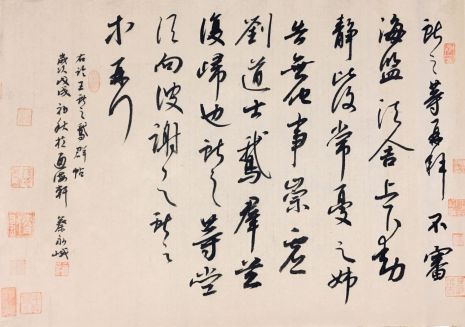 獻之等再拜不審
海鹽諸舍上下動
靜比復常憂之姊
告無他事崇虛
劉道士鵝群並
復歸也獻之等當
須向彼謝之獻之
等再拜
右臨王獻之鵝群帖
歲次戊戌初秋於海軒 蔡永